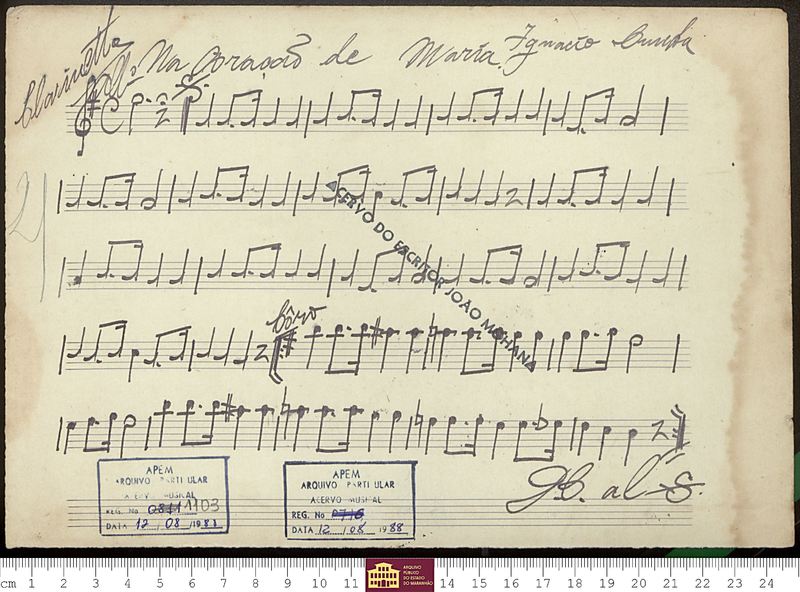 Clarinetta
Na Coração de Maria. Ignacio Cunha
2
ACERVO DO ESCRITOR JOÃO MOHANA
Côro
DC. al S.
APEM
ARQUIVO PARTICULAR
ACERVO MUSICAL
REG. No 0841 1103
DATA 12 / 08 / 1988
APEM
ARQUIVO PARTICULAR
ACERVO MUSICAL
REG. No 0716
DATA 12 / 08 / 1988
cm 1 2 3 4 5 6 7 8 9 10 11 14 15 16 17 18 19 20 21 22 23 24
ARQUIVO
PÚBLICO
DO ESTADO
DO MARANHÃO